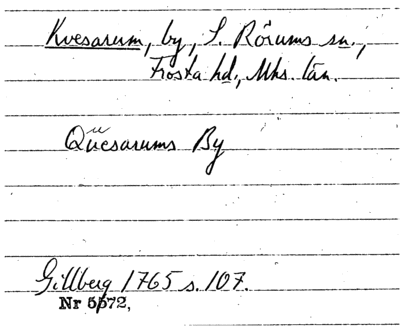 Kvesarum, by, S. Rörums sn.,
Frosta hd., Mhs. län.
Qüesarums By
Gillberg 1765 s. 107.
Nr 5572,